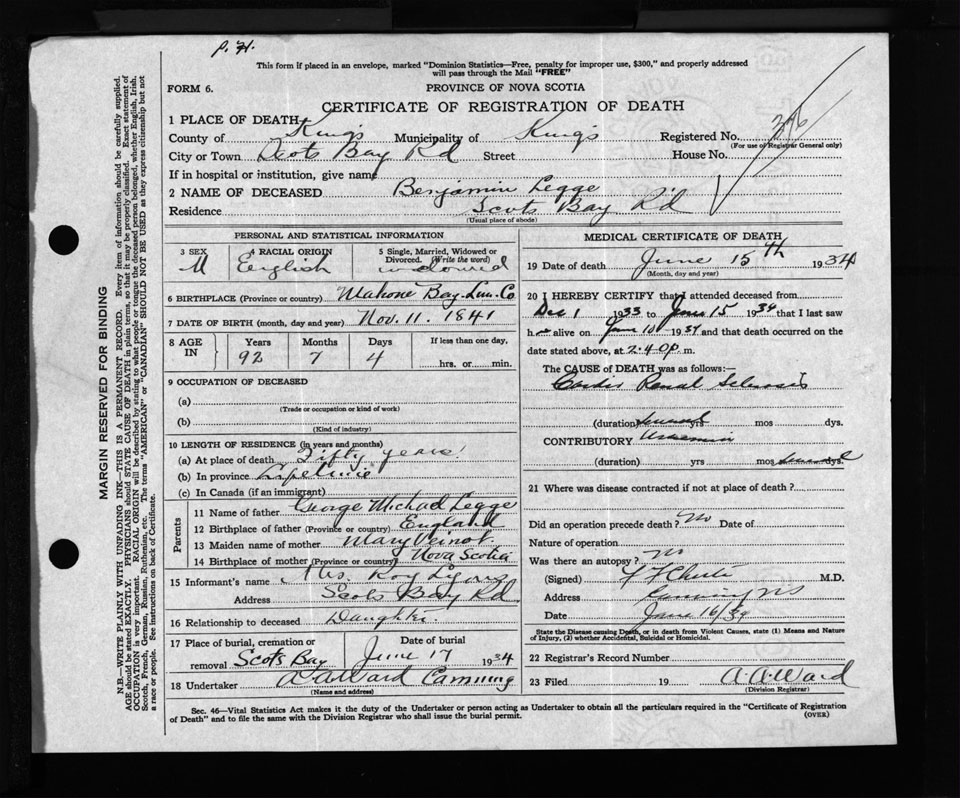 P. H.
This form if placed in an envelope, marked "Dominion Statistics—Free, penalty for improper use, $300," and properly addressed
will pass through the Mail "FREE"
FORM 6.
PROVINCE OF NOVA SCOTIA
CERTIFICATE OF REGISTRATION OF DEATH
1 PLACE OF DEATH
County of Kings Municipality of Kings Registered No. 
(For use of Registrar General only)
City or Town Scots Bay Rd Street House No.
If in hospital or institution, give name
2 NAME OF DECEASED Benjamin Legge
Residence Scots Bay Rd
(Usual place of abode)
MARGIN RESERVED FOR BINDING
N.B.—WRITE PLAINLY WITH UNFADING INK—THIS IS A PERMANENT RECORD. Every item of information should be carefully supplied.
AGE should be stated EXACTLY. PHYSICIANS should STATE CAUSE OF DEATH in plain terms, so that it may be properly classified. Exact statement of
OCCUPATION is very important. RACIAL ORIGIN will be described by stating to what people or tongue the deceased person belonged, whether English, Irish,
Scotch, French, German, Russian, Ruthenian, etc. The terms "AMERICAN" or "CANADIAN" SHOULD NOT BE USED as they express citizenship but not
a race or people. See instructions on back of Certificate.
PERSONAL AND STATISTICAL INFORMATION
3 SEX 4 RACIAL ORIGIN 5 Single, Married, Widowed or
Divorced. (Write the word)
M English widowed
6 BIRTHPLACE (Province or country) Mahone Bay Lun. Co
7 DATE OF BIRTH (month, day and year) Nov. 11. 1841
8 AGE IN Years Months Days If less than one day,
92 7 4 hrs. or min.
9 OCCUPATION OF DECEASED
(a)
(Trade or occupation or kind of work)
(b)
(Kind of industry)
10 LENGTH OF RESIDENCE (in years and months)
(a) At place of death Fifty years
(b) In province Lifetime
(c) In Canada (if an immigrant)
Parents
11 Name of father George Michael Legge
12 Birthplace of father (Province or country) England
13 Maiden name of mother Mary Veinot
14 Birthplace of mother (Province or country) Nova Scotia
15 Informant's name Mrs. Roy
Address Scots Bay Rd
16 Relationship to deceased Daughter
17 Place of burial, cremation or Date of burial
removal Scots Bay June 17 1934
18 Undertaker A A Ward Canning
(Name and address)
MEDICAL CERTIFICATE OF DEATH
19 Date of death June 15th 1934
(Month, day and year)
20 I HEREBY CERTIFY that I attended deceased from
Dec 1 1933 to June 15 1934 that I last saw
h alive on June 10 1934 and that death occurred on
date stated above, at 2.40 p. m.
The CAUSE of DEATH was as follows:—
Cardio Renal Sclerosis
(duration) several yrs mos dys.
CONTRIBUTORY Uraemia
(duration) yrs mos several dys.
21 Where was disease contracted if not at place of death?
Did an operation precede death? No Date of
Nature of operation
Was there an autopsy? No
(Signed) M.D.
Address Canning NS
Date June 16/34
State the Disease causing Death, or in death from Violent Causes, state (1) Means and Nature
of Injury, (2) whether Accidental, Suicidal or Homicidal.
22 Registrar's Record Number
23 Filed 19 A. A. Ward
(Division Registrar)
Sec. 46—Vital Statistics Act makes it the duty of the Undertaker or person acting as Undertaker to obtain all the particulars required in the "Certificate of Registration
of Death" and to file the same with the Division Registrar who shall issue the burial permit. (OVER)